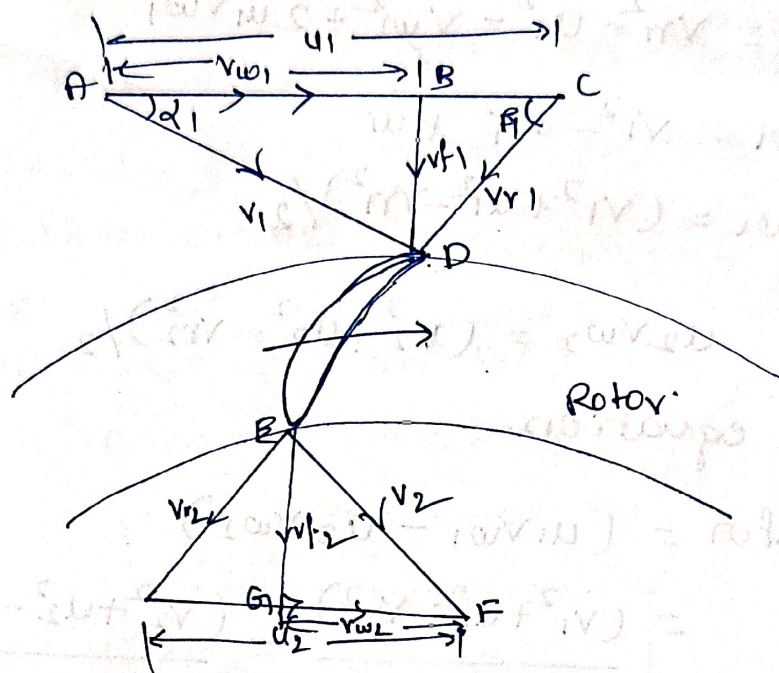 u1
Vw1
A
B
C
α1
β1
Vf1
Vr1
V1
D
Rotor.
E
Vr2
Vf2
V2
G
F
u2
Vw2